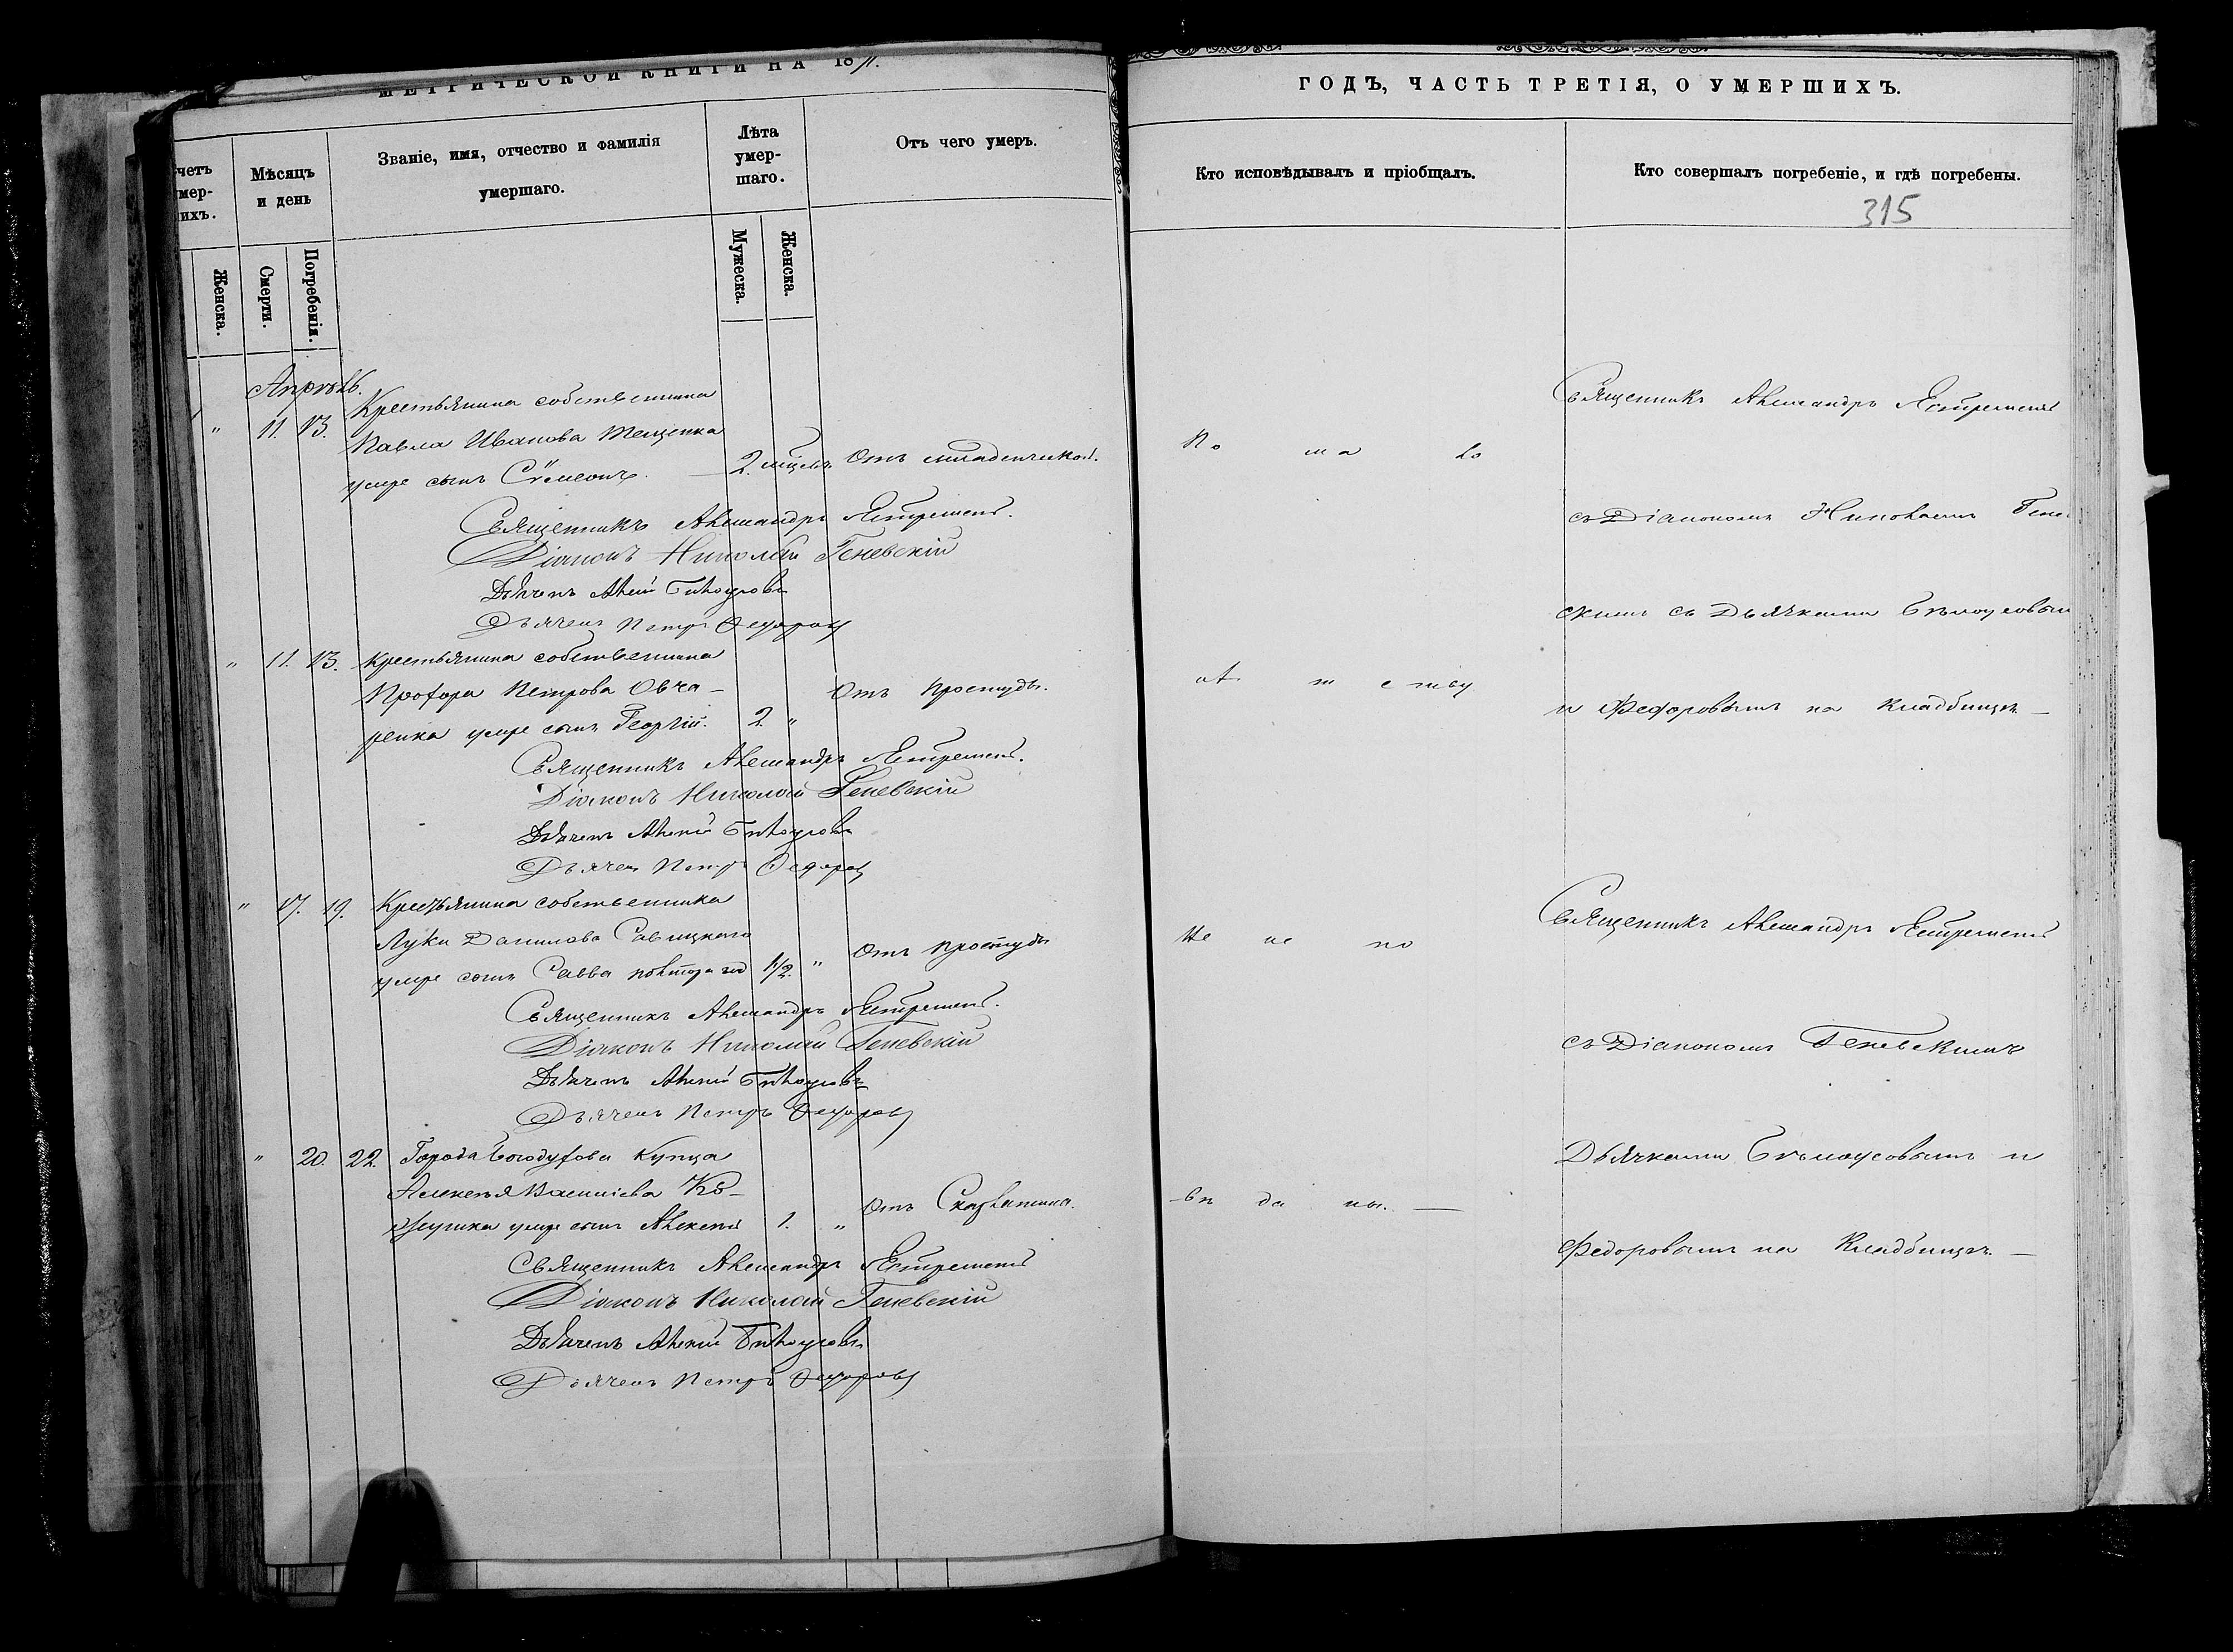 МЕТРИЧЕСКОЙ КНИГИ НА 1871.
четъ
мер-
ихъ.
Мѣсяцъ
и день
Званіе, имя, отчество и фамилія
умершаго.
Лѣта
умер-
шаго.
Отъ чего умеръ.
Женска.
Смерти.
Погребенія.
Мужеска.
Женска.
Апрѣль.
Крестьянина собственника
" 11. 13. Павла Иванова
умре сынъ Сѵмеонъ. 2. мѣсяц. Отъ младенческой.
Священникъ Александръ
Діаконъ Николай Геневскій
Дьячекъ Алексій Бѣлоусовъ
Дьячекъ Петръ Федоровъ
" 11. 13. Крестьянина собственника
Прохора Петрова Овча-
ренка умре сынъ Георгій. 2 " Отъ простуды.
Священникъ Александръ
Діаконъ Николай Геневскій
Дьячекъ Алексій Бѣлоусовъ
Дьячекъ Петръ Федоровъ
" 17. 19. Крестьянина собственника
Луки Данилова Савицкаго
умре сынъ Савва полтора год 1 1/2. " Отъ простуды
Священникъ Александръ
Діаконъ Николай Геневскій
Дьячекъ Алексій Бѣлоусовъ
Дьячекъ Петръ Федоровъ
" 20. 22. Города Богодухова купца
Алексѣя Василіева
умре сынъ Алексѣй 1. " Отъ Скарлатина.
Священникъ Александръ
Діаконъ Николай Геневскій
Дьячекъ Алексій Бѣлоусовъ
Дьячекъ Петръ Федоровъ
ГОДЪ, ЧАСТЬ ТРЕТІЯ, О УМЕРШИХЪ.
Кто исповѣдывалъ и пріобщалъ.
Кто совершалъ погребеніе, и гдѣ погребены.
315
По ма ло
лѣ т ству
не ис по
-вѣ да ны. —
Священникъ Александръ
съ Діакономъ Николаемъ Гене
скимъ съ Дьячками Бѣлоусовым
и Федоровымъ на кладбищѣ. —
Священникъ Александръ
съ Діакономъ Геневскимъ
Дьячками Бѣлоусовымъ и
Федоровымъ на Кладбищѣ. —